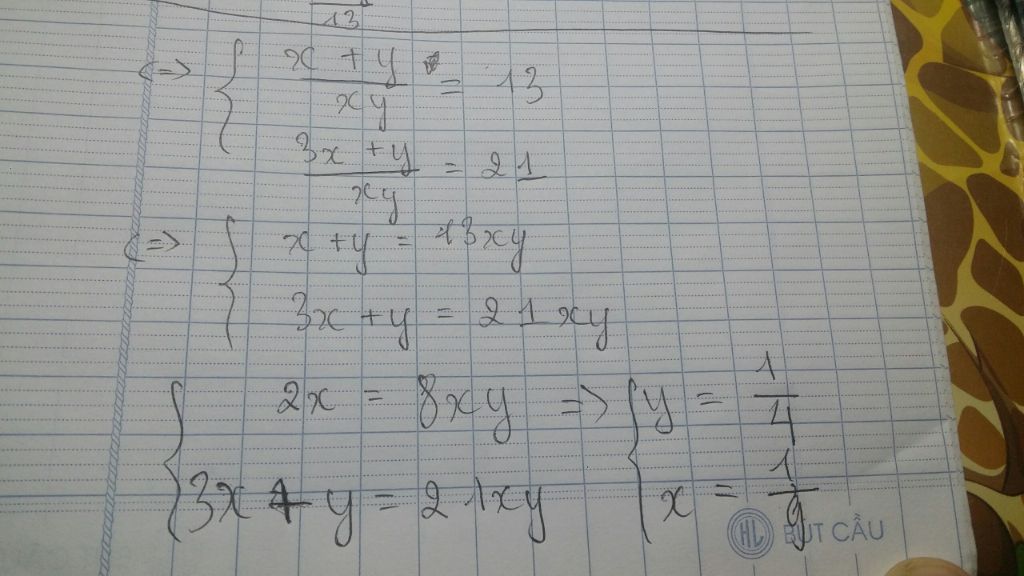 13
<=> { x + y / xy = 13
3x + y / xy = 21
<=> { x + y = 13xy
3x + y = 21xy
{ 2x = 8xy => { y = 1/4
3x + y = 21xy x = 1/9
HL BÚT CẦU